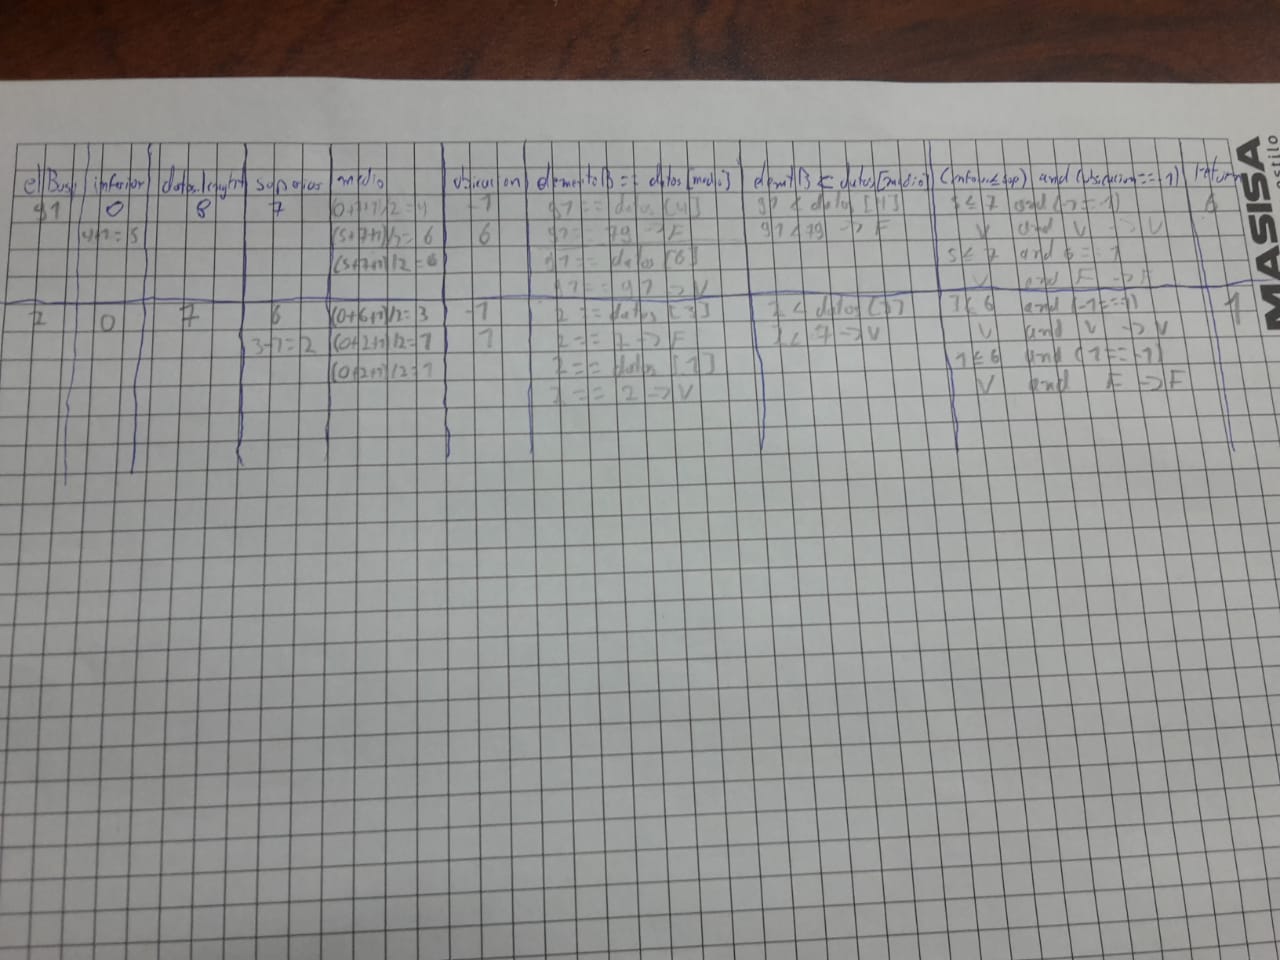 el Bus inferior datos.lenght superior medio ubicacion elementoB == datos[medio] elemtB < datos[medio] (inferior ≤ sup) and (ubicacion == -1) return
91 0 8 7 (0+7+1)/2=4 -1 91 == datos [4] 91 < datos [4] 5 ≤ 7 and (-1 == -1) 6
4+1=5 (5+7+1)/2=6 6 91 == 79 → F 91 < 79 → F V and V → V
(5+7+1)/2=6 91 == datos [6] 5 ≤ 7 and 6 == -1
91 == 91 → V V and F → F
2 0 7 6 (0+6+1)/2=3 -1 2 == datos [3] 2 < datos [3] 1 ≤ 6 and (-1 == -1) 1
3-1=2 (0+2+1)/2=1 1 2 == 7 → F 2 < 7 → V V and V → V
(0+2+1)/2=1 2 == datos [1] 1 ≤ 6 and (1 == -1)
2 == 2 → V V and F → F
MASISA